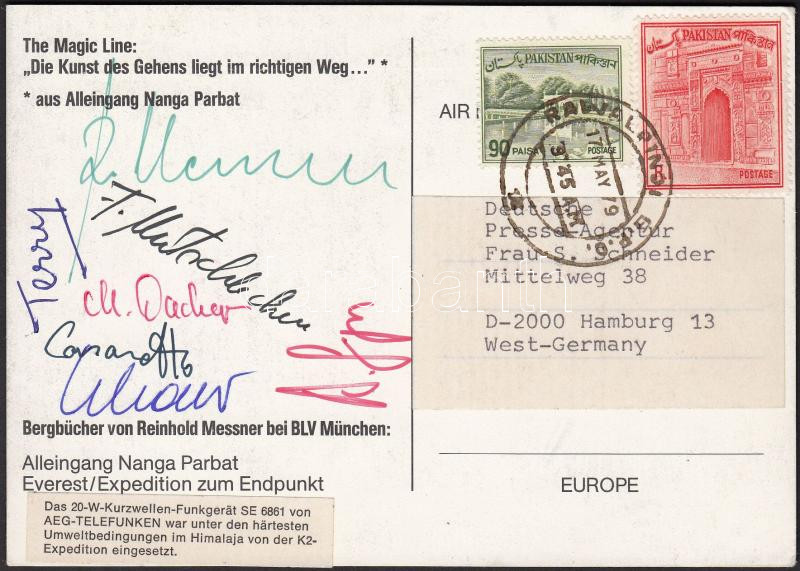 The Magic Line:
„Die Kunst des Gehens liegt im richtigen Weg…" *
* aus Alleingang Nanga Parbat
R. Messner
Terry
M. Dacher
Casarotto
Bergbücher von Reinhold Messner bei BLV München:
Alleingang Nanga Parbat
Everest/Expedition zum Endpunkt
Das 20-W-Kurzwellen-Funkgerät SE 6861 von
AEG-TELEFUNKEN war unter den härtesten
Umweltbedingungen im Himalaja von der K2-
Expedition eingesetzt.
AIR
پاکستان PAKISTAN পাকিস্তান
90 PAISA POSTAGE
پاکستان PAKISTAN পাকিস্তান
POSTAGE
RAWALPINDI G.P.O.
17 MAY 79
3.45 AM
Deutsche
Presse-Agentur
Frau S. Schneider
Mittelweg 38
D-2000 Hamburg 13
West-Germany
EUROPE